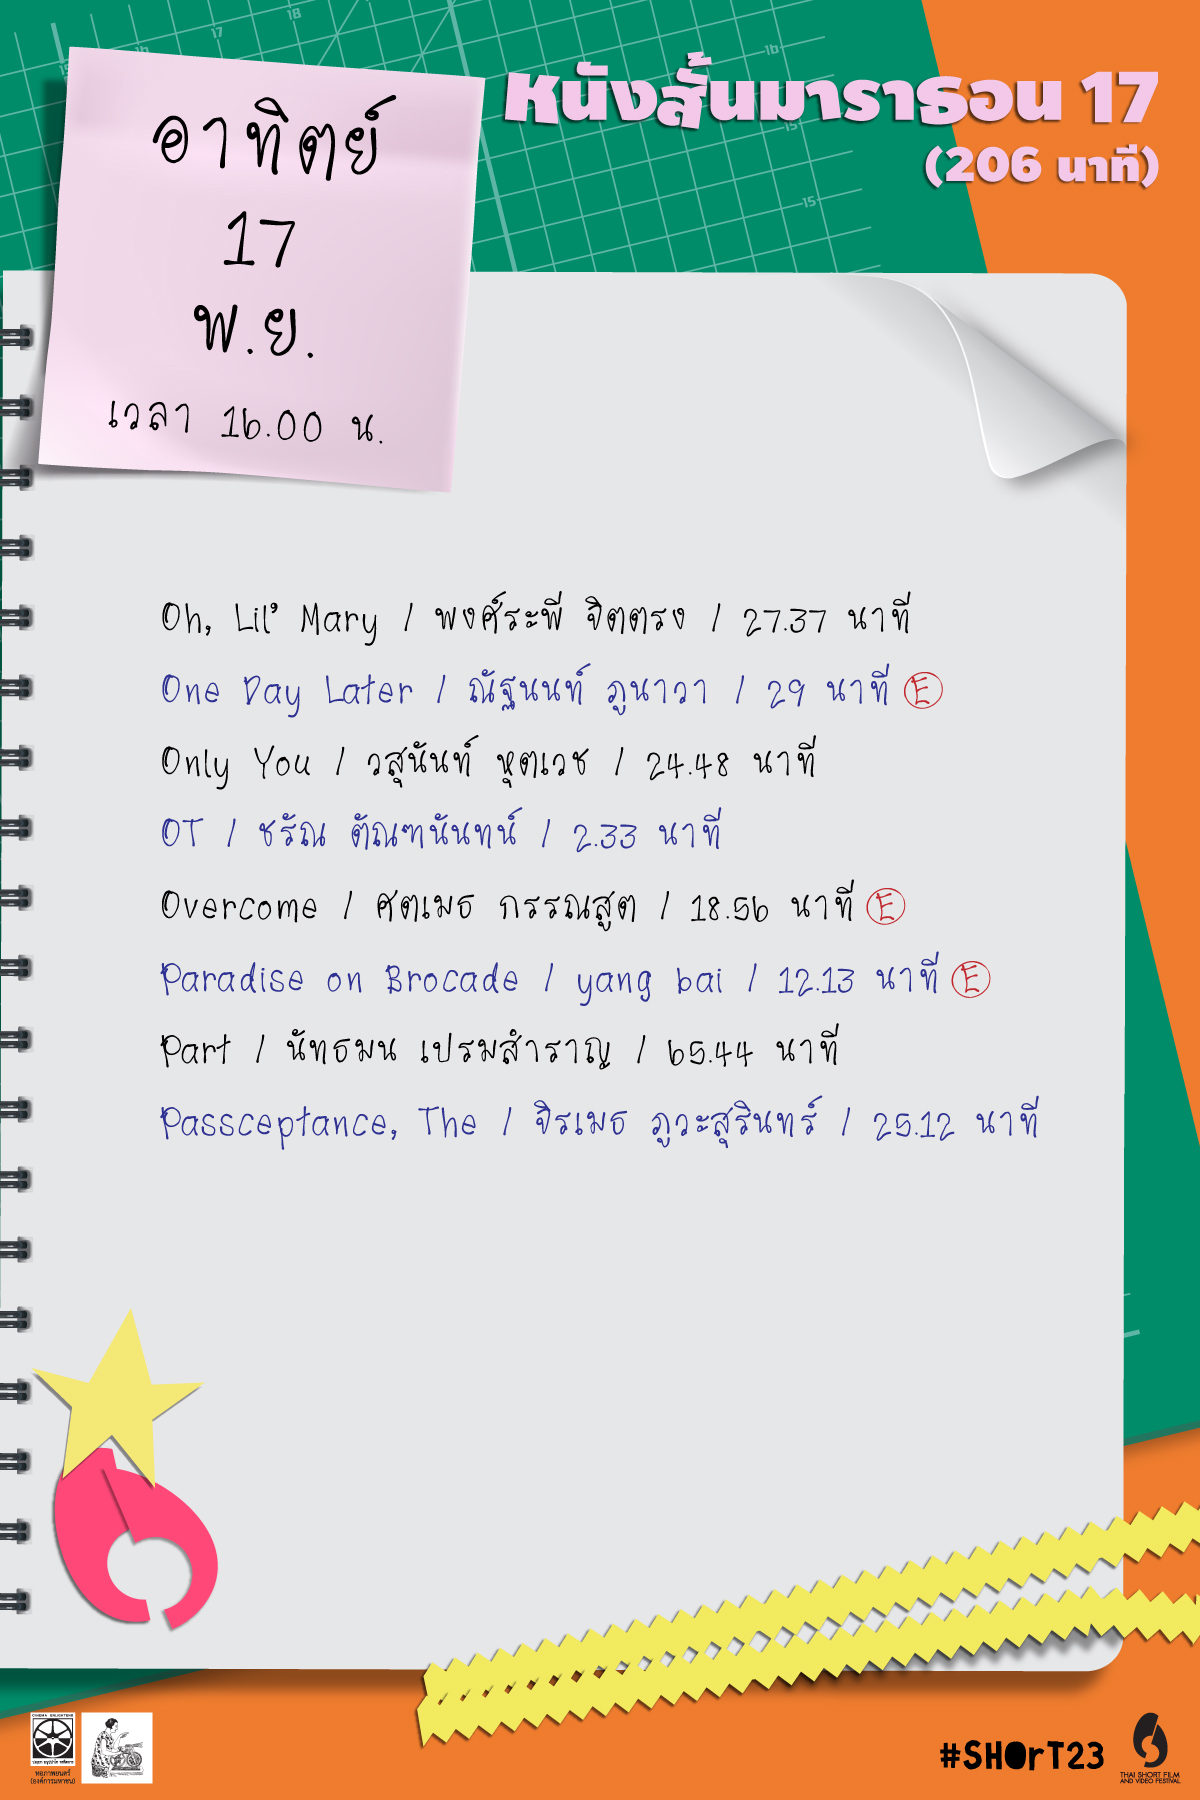 หนังสั้นมาราธอน 17
(206 นาที)
อาทิตย์
17
พ.ย.
เวลา 16.00 น.
Oh, Lil' Mary / พงศ์ระพี จิตตรง / 27.37 นาที
One Day Later / ณัฐนนท์ ภูนาวา / 29 นาที E
Only You / วสุนันท์ หุตเวช / 24.48 นาที
OT / ชรัณ ตัณฑนันทน์ / 2.33 นาที
Overcome / ศตเมธ กรรณสูต / 18.56 นาที E
Paradise on Brocade / yang bai / 12.13 นาที E
Part / นัทธมน เปรมสำราญ / 65.44 นาที
Passceptance, The / จิรเมธ ภูวะสุรินทร์ / 25.12 นาที
หอภาพยนตร์
(องค์การมหาชน)
#SHOrT23
THAI SHORT FILM
AND VIDEO FESTIVAL